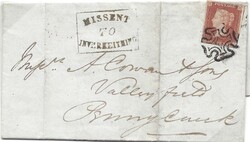 MISSENT
TO
INVERKEITHING
Messrs A. Cowan & Sons
Valleyfield
Pennycuick